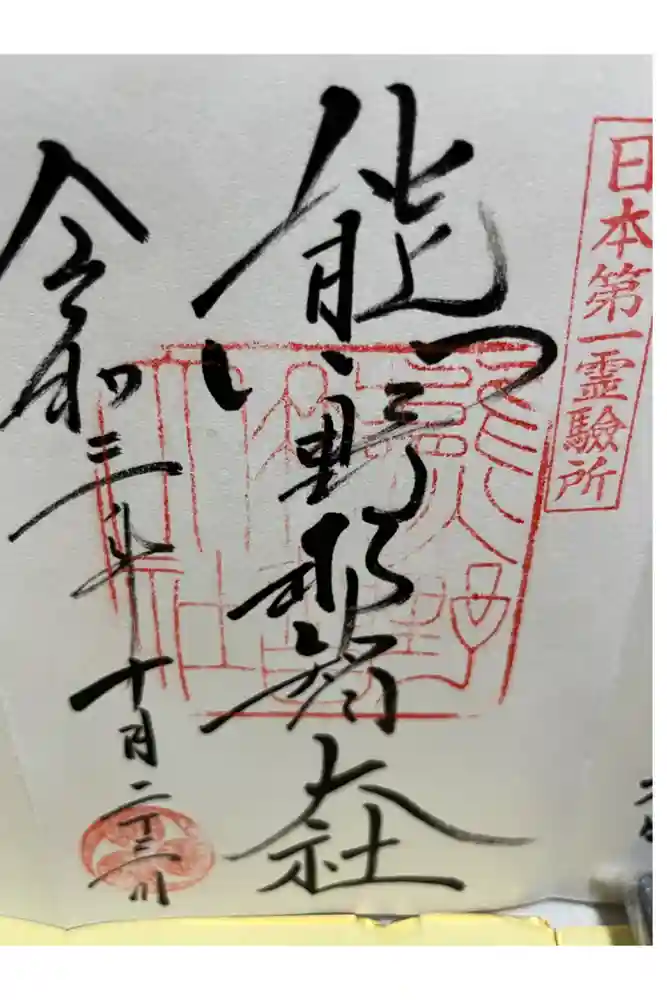 日本第一霊驗所
熊野那智大社
令和三年十月二十三日